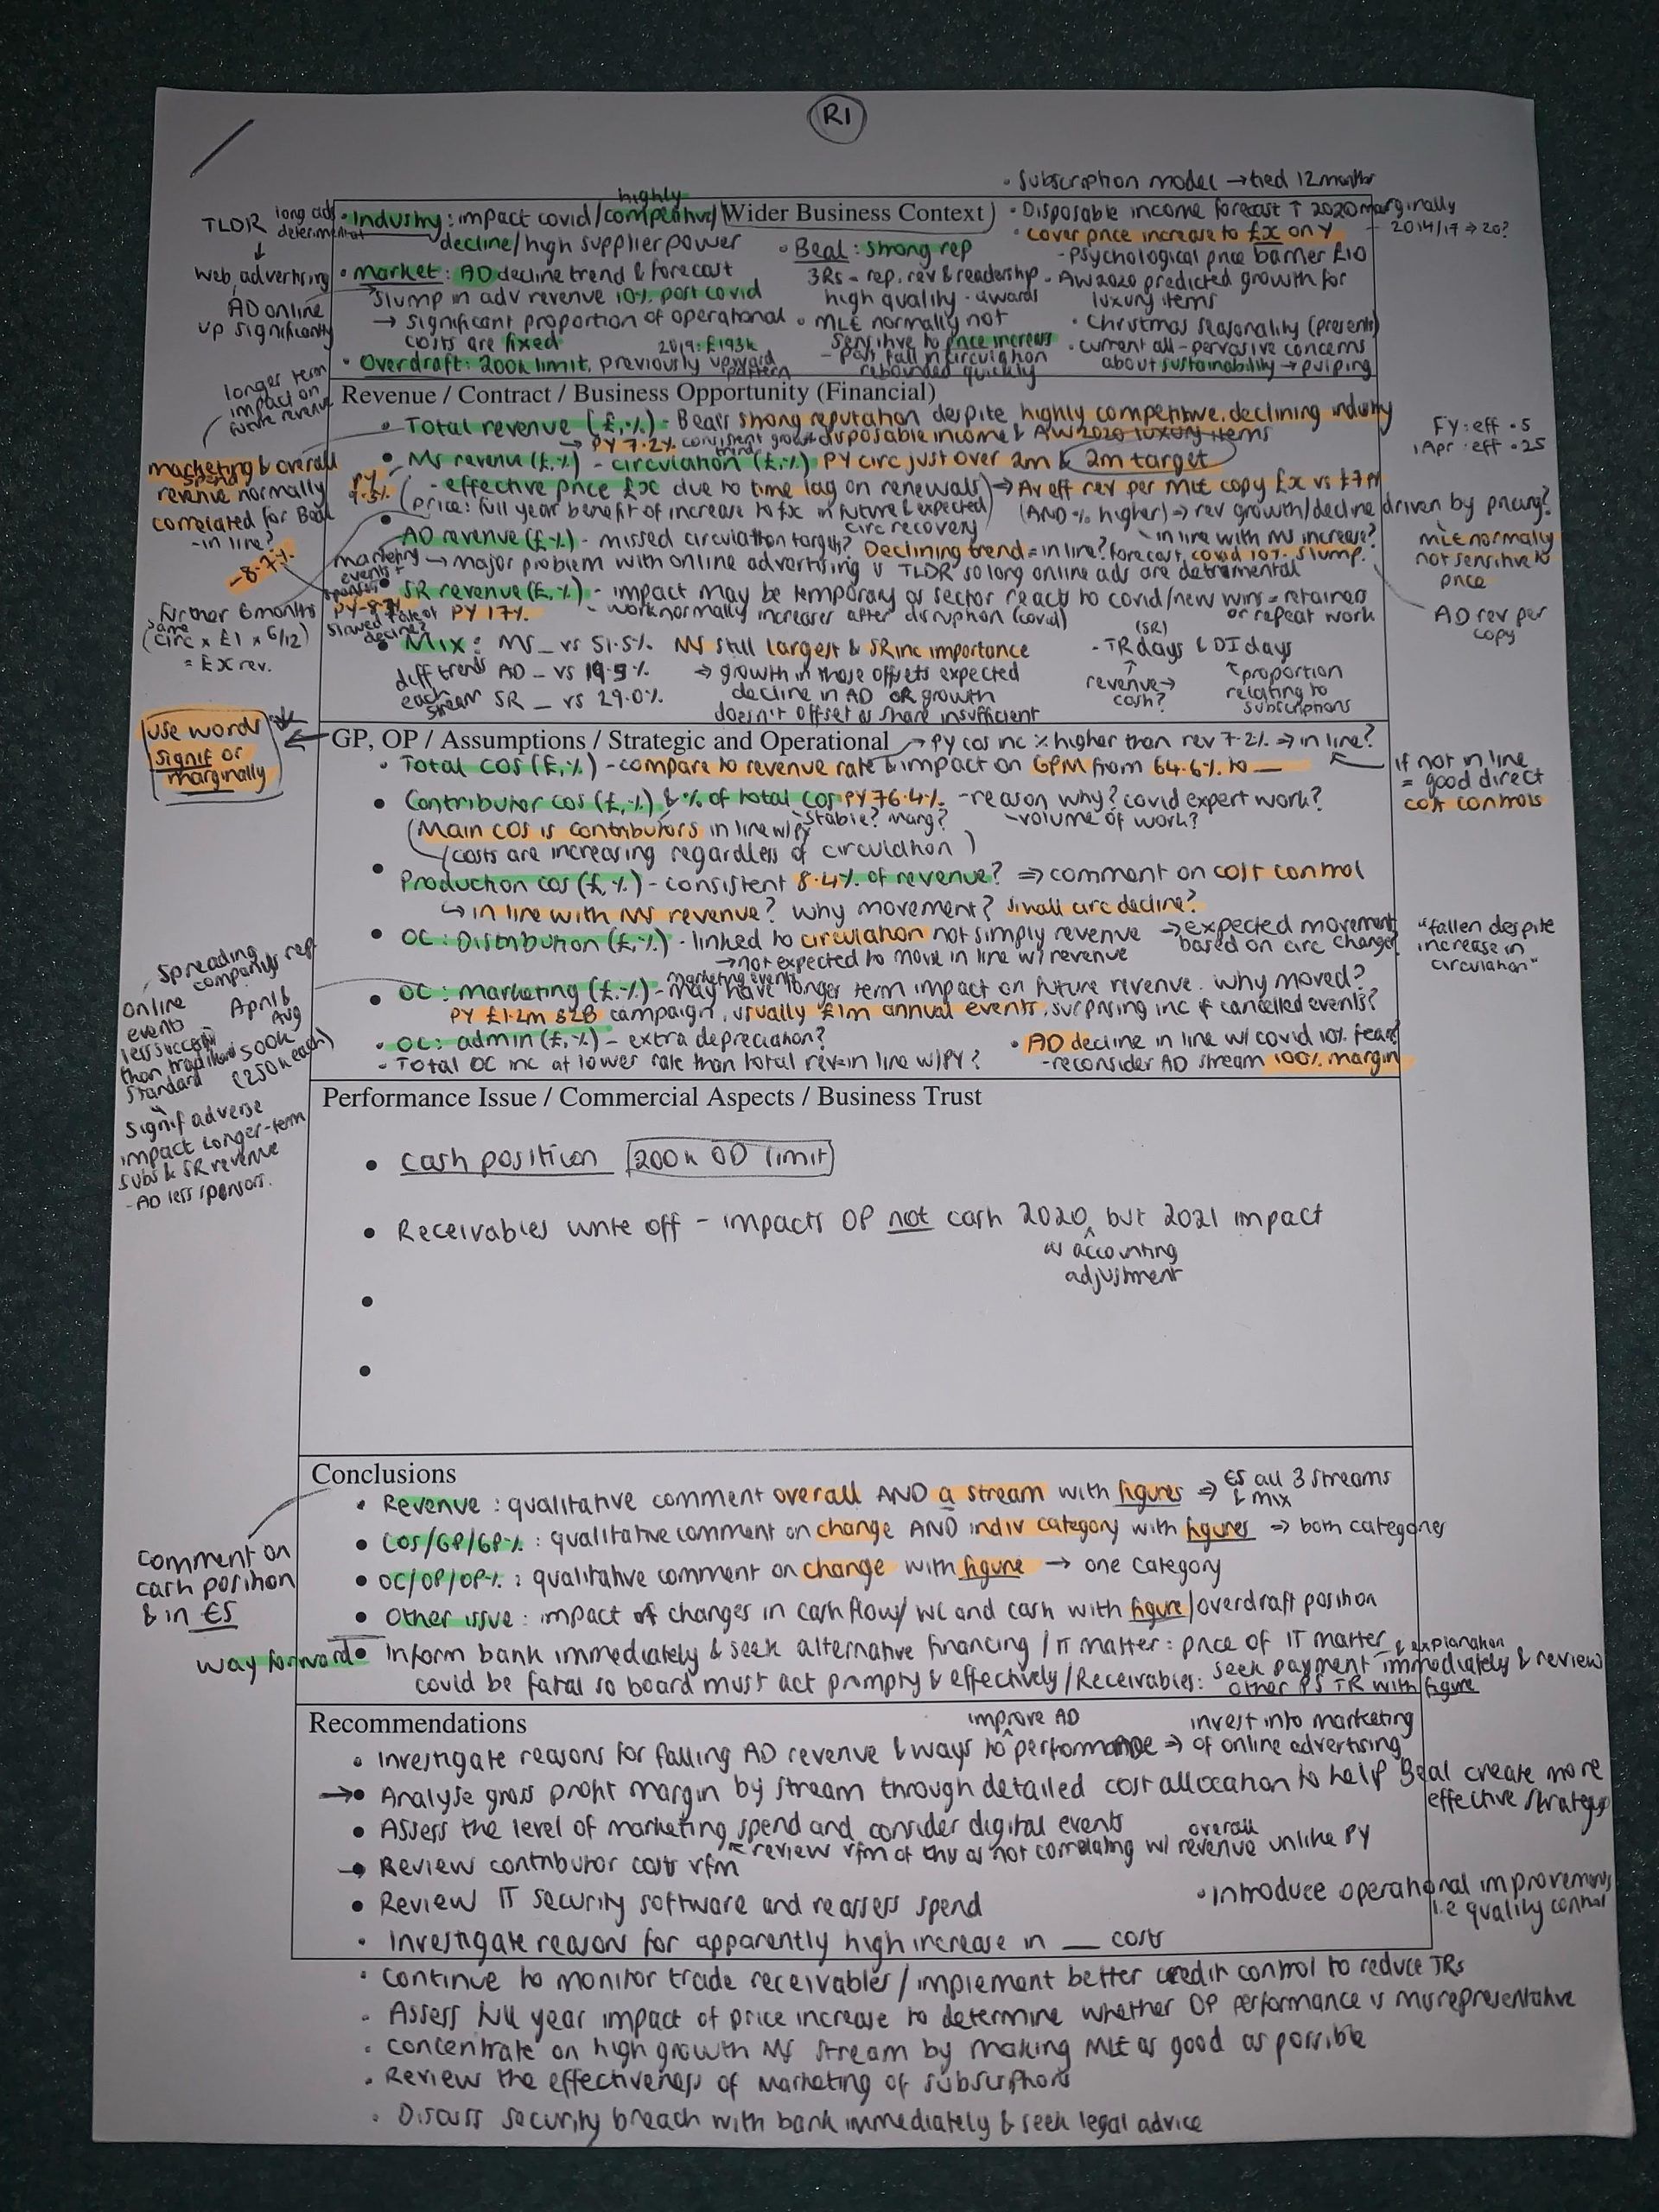 R1
• Subscription model → tied 12 months
TLDR
long ads
detrimental
↓
web advertising
AD online
up significantly
highly
• Industry: impact covid/competitive/
decline/high supplier power
• Market: AD decline trend & forecast
Slump in adv revenue 10% post covid
→ significant proportion of operational
costs are fixed
2019: £193k
• Overdraft: 200k limit, previously upward
pattern
Wider Business Context
• Beal: strong rep
3Rs - rep, rev & readership
high quality - awards
• MLE normally not
sensitive to price increases
- past fall in circulation
rebounded quickly
• Disposable income forecast ↑ 2020 marginally
• Cover price increase to £x on Y - 2014/17 → 20?
- Psychological price barrier £10
• AW2020 predicted growth for
luxury items
• Christmas seasonality (presents)
• current all-pervasive concerns
about sustainability → pulping
longer term
impact on
future revenue
Revenue / Contract / Business Opportunity (Financial)
• Total revenue (£,%) - Beal's strong reputation despite highly competitive, declining industry
→ PY 7.2% consistent growth trend
disposable income & AW2020 luxury items
• MS revenue (£,%) - circulation (£,%) PY circ just over 2m & 2m target
PY 9.3%
- effective price £x due to time lag on renewals) → Av eff rev per MLE copy £x vs £7 PY
(price: full year benefit of increase to £x in future & expected
circ recovery
(AND % higher) → rev growth/decline driven by pricing?
• AD revenue (£,%) - missed circulation target? Declining trend = in line? forecast, covid 10% slump.
in line with MS increase?
→ major problem with online advertising is TLDR so long online ads are detrimental
• SR revenue (£,%) - impact may be temporary as sector reacts to covid/new wins = retained
or repeat work
PY 17%
- work normally increases after disruption (covid)
• Mix: MS _ vs 51.5% MS still largest & SR inc importance
diff trends AD _ vs 19.5%
each stream SR _ vs 29.0%
→ growth in those offsets expected
decline in AD OR growth
doesn't offset as share insufficient
(SR)
- TR days & DI days
↑
revenue →
cash?
↑ proportion
relating to
subscriptions
marketing & overall
spend
revenue normally
correlated for Beal
- in line?
-8.7%
marketing
events +
sponsors
PY -8.7%
slowed rate of
decline?
Further 6 months
same
(circ x £1 x 6/12)
= £x rev.
FY: eff .5
1 Apr: eff .25
MLE normally
not sensitive to
price
AD rev per
copy
use words
signif or
marginally
GP, OP / Assumptions / Strategic and Operational
→ PY cos inc % higher than rev 7.2% → in line?
• Total cos (£,%) - compare to revenue rate & impact on GPM from 64.6% to __
• Contributor cos (£,%) & % of total cos PY 76.4% - reason why? covid expert work?
- stable? marg?
- volume of work?
(Main cos is contributors in line w/PY
(costs are increasing regardless of circulation)
• Production cos (£,%) - consistent 8.4% of revenue? ⇒ comment on cost control
↳ in line with MS revenue? why movement? small circ decline?
• OC: Distribution (£,%) - linked to circulation not simply revenue → expected movement
based on circ change?
→ not expected to move in line w/ revenue
• OC: marketing (£,%) - may have longer term impact on future revenue. why moved?
marketing events
PY £1.2m B2B campaign, usually £1m annual events, surprising inc if cancelled events?
• OC: admin (£,%) - extra depreciation?
- Total OC inc at lower rate than total rev - in line w/PY?
• AD decline in line w/ covid 10% fear?
- reconsider AD stream 100% margin
if not in line
= good direct
cost controls
"fallen despite
increase in
circulation"
spreading
company's rep
online
events
less success
than traditional
standard
April &
Aug
500k
(250k each)
signif adverse
impact longer-term
subs & SR revenue
- AD less sponsors.
Performance Issue / Commercial Aspects / Business Trust
• Cash position [200k OD limit]
• Receivables write off - impacts OP not cash 2020 but 2021 impact
as accounting
adjustment
•
•
Conclusions
• Revenue: qualitative comment overall AND a stream with figures ⇒ ES all 3 streams
& mix
• COS/GP/GP%: qualitative comment on change AND indiv category with figures ⇒ both categories
• OC/OP/OP%: qualitative comment on change with figure → one category
• Other issue: impact of changes in cash flow/ WC and cash with figure/overdraft position
way forward
• Inform bank immediately & seek alternative financing / IT matter: price of IT matter
could be fatal so board must act promptly & effectively/Receivables: seek payment immediately & review
& explanation
other PS TR with figure
comment on
cash position
& in ES
Recommendations
• Investigate reasons for falling AD revenue & ways to improve AD performance ⇒ invest into marketing
of online advertising
→• Analyse gross profit margin by stream through detailed cost allocation to help Beal create more
effective strategy
• Assess the level of marketing spend and consider digital events
review vfm of this as not correlating w/ overall revenue unlike PY
→• Review contributor costs vfm
• Review IT security software and reassess spend
• Introduce operational improvements
i.e quality control
• Investigate reasons for apparently high increase in __ costs
• Continue to monitor trade receivables / implement better credit control to reduce TRs
• Assess full year impact of price increase to determine whether OP performance is misrepresentative
• Concentrate on high growth MS stream by making MLE as good as possible
• Review the effectiveness of marketing of subscriptions
• Discuss security breach with bank immediately & seek legal advice